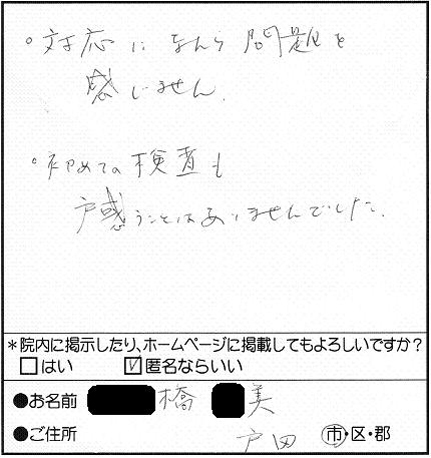 。対応になんら問題を
感じません。
。初めての検査も
戸惑うことはありませんでした。
*院内に掲示したり、ホームページに掲載してもよろしいですか？
□はい ☑匿名ならいい
●お名前 橋 美
●ご住所 戸田 市・区・郡